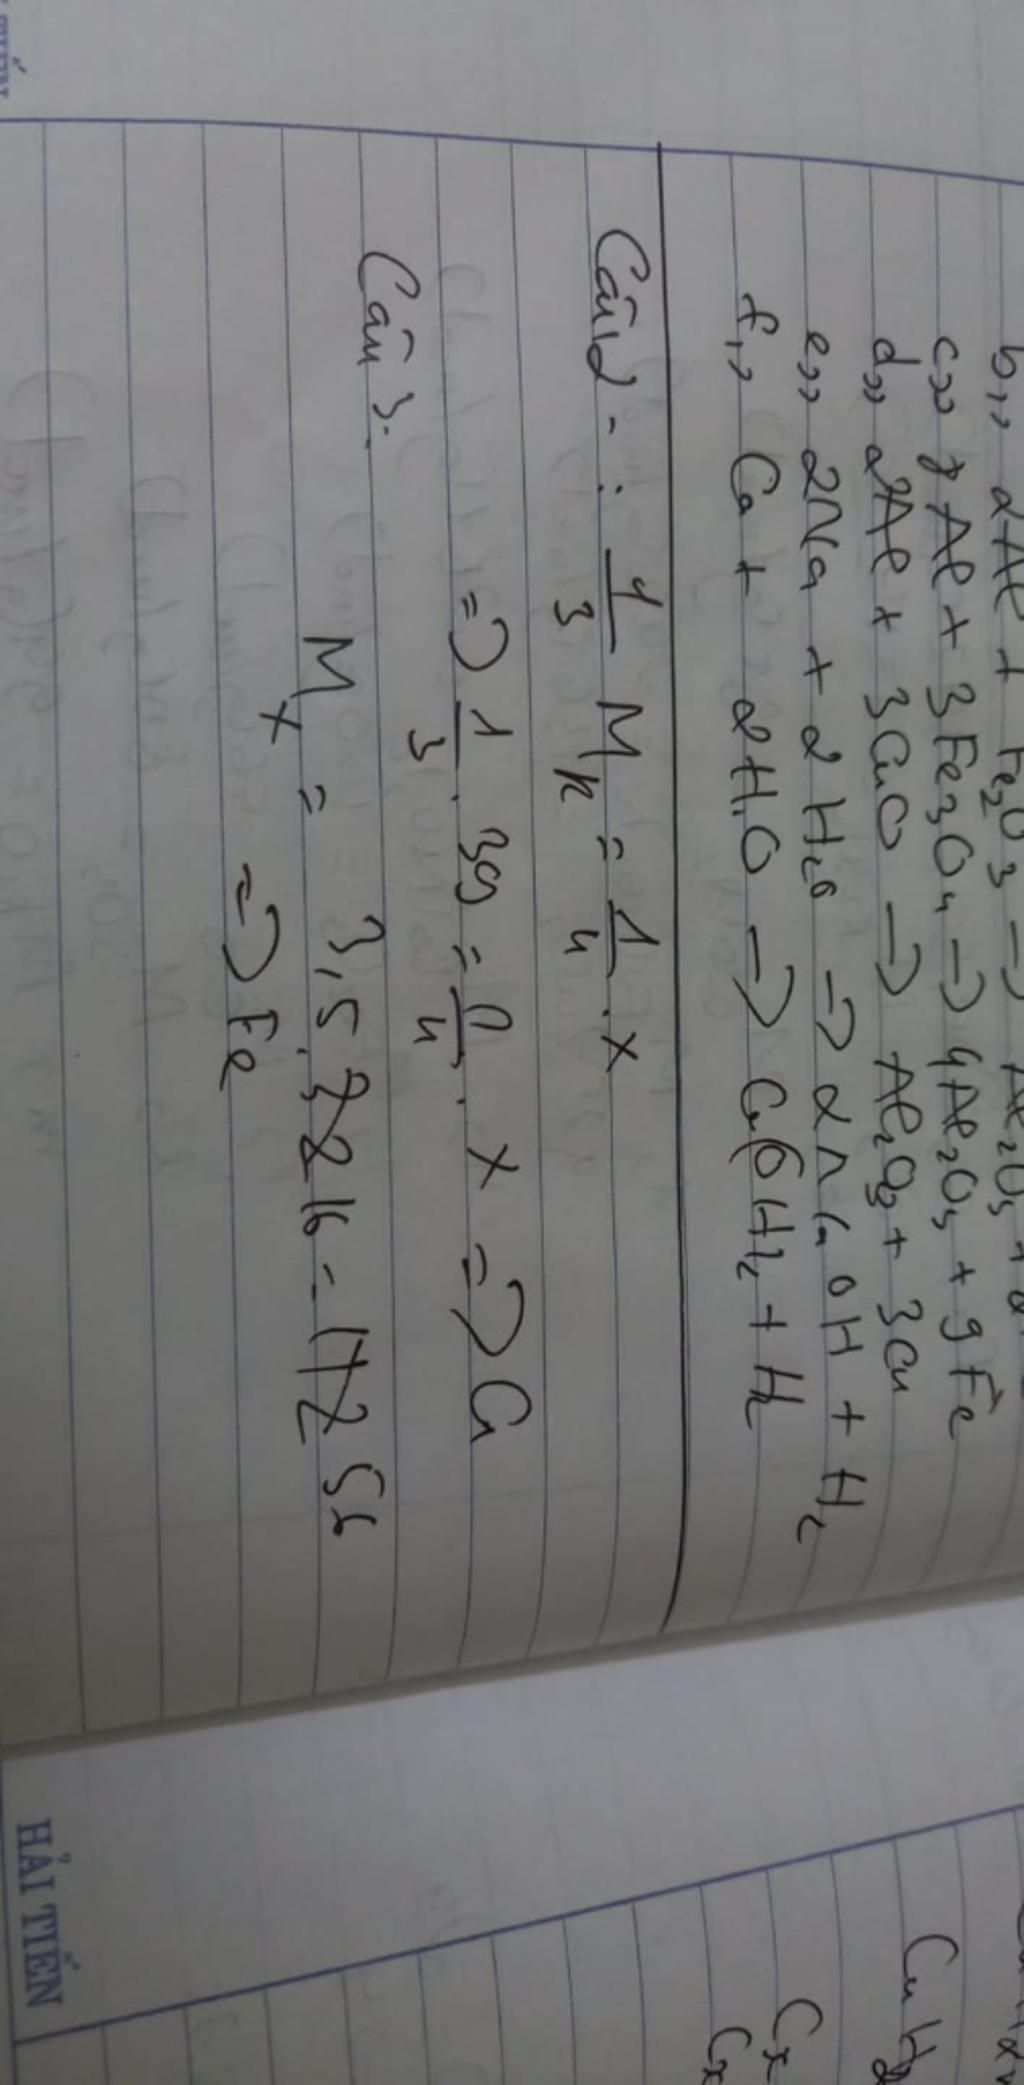 b,, 2Al + Fe2O3 -> Al2O3 +
c,, 8Al + 3Fe3O4 -> 4Al2O3 + 9Fe
d,, 2Al + 3CuO -> Al2O3 + 3Cu
e,, 2Na + 2H2O -> 2NaOH + H2
f,, Ca + 2H2O -> Ca(OH)2 + H2
Câu 2 : 1/3 MK = 1/4 . x
=> 1/3 . 39 = 1/4 . x => Cr
Câu 3.
Mx = 3,5 . 16 = 56
=> Fe
HẢI TIẾN
Cx
Cx